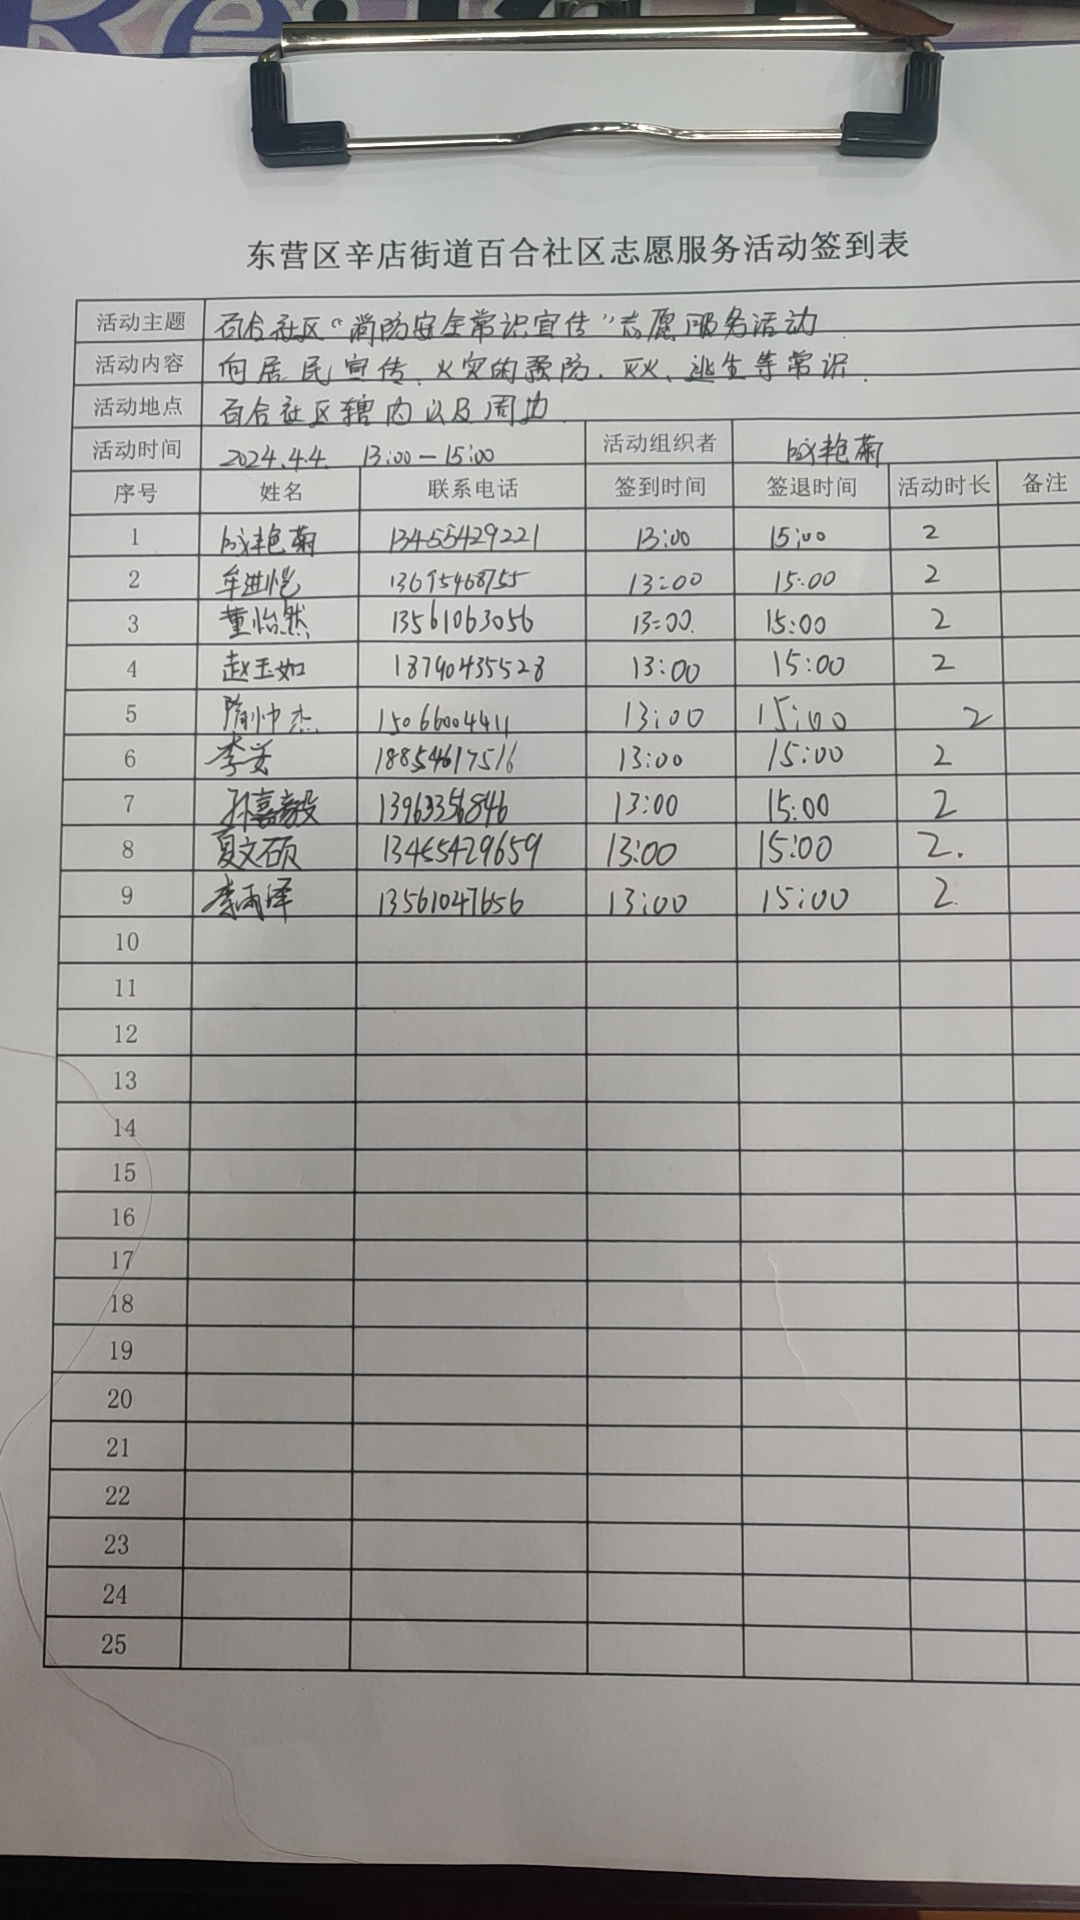 东营区辛店街道百合社区志愿服务活动签到表
活动主题 百合社区“消防安全常识宣传”志愿服务活动
活动内容 向居民宣传、火灾的预防、灭火、逃生等常识.
活动地点 百合社区辖内以及周边
活动时间 2024.4.4. 13:00-15:00 活动组织者 艳菊
序号 姓名 联系电话 签到时间 签退时间 活动时长 备注
1 艳菊 13455429221 13:00 15:00 2
2 牟进恺 13695468755 13:00 15:00 2
3 董怡然 13561063056 13:00. 15:00 2
4 赵玉如 15:00 13:00 2
5 隋帅杰 15066004411 13:00 15:00 2
6 李 18854617516 13:00 15:00 2
7 孙嘉毅 13963356846 13:00 15:00 2
8 夏文硕 13455429659 13:00 15:00 2.
9 李雨泽 13561047656 13:00 15:00 2.
10
11
12
13
14
15
16
17
18
19
20
21
22
23
24
25